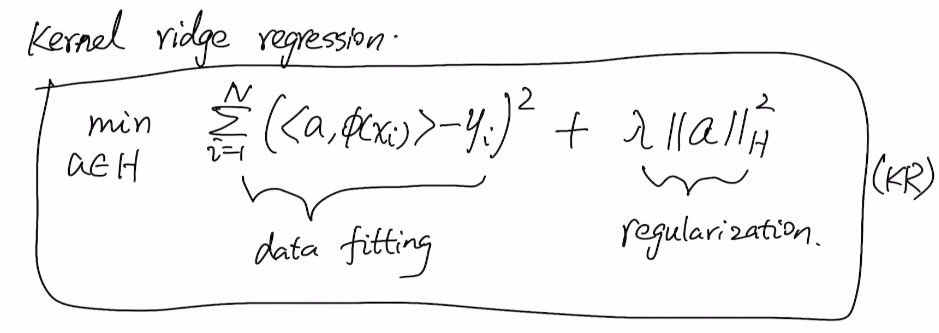 Kernel ridge regression.
min a∈H ∑_{i=1}^{N} (<a, φ(x_i)> - y_i)^2 + λ ||a||_H^2 (KR)
data fitting regularization.